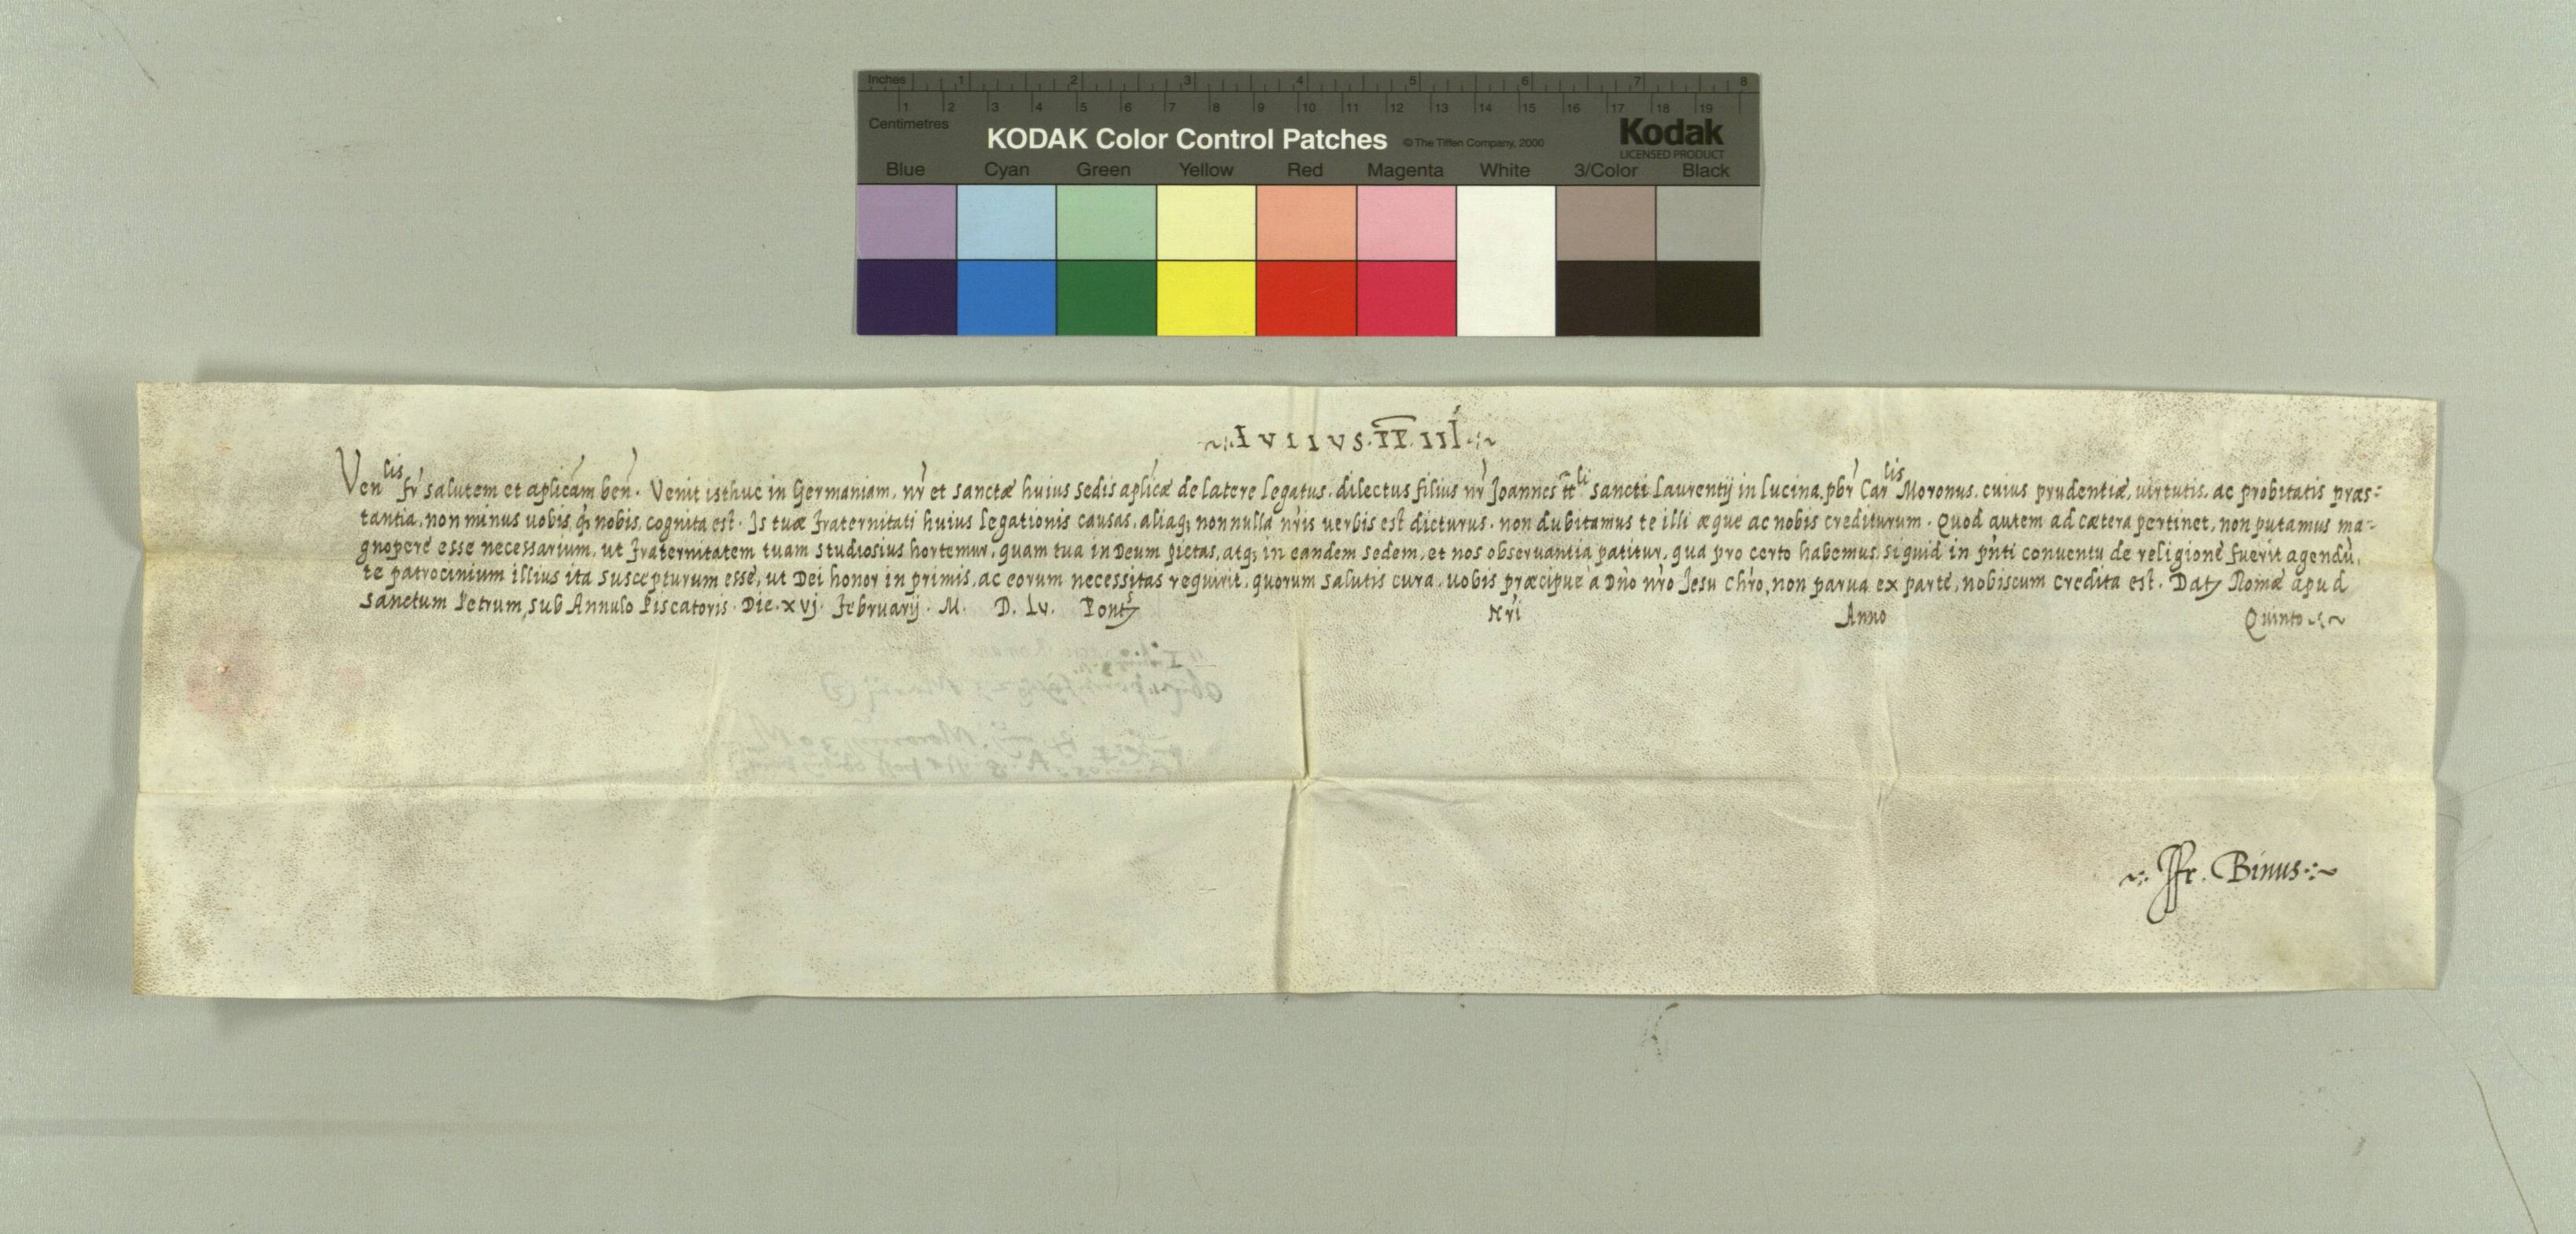 Inches 1 2 3 4 5 6 7 8
1 2 3 4 5 6 7 8 9 10 11 12 13 14 15 16 17 18 19
Centimetres
KODAK Color Control Patches © The Tiffen Company, 2000 Kodak
LICENSED PRODUCT
Blue Cyan Green Yellow Red Magenta White 3/Color Black
~:IVLIVS. PP. III:~
Venlis fr̃ salutem et aplicam ben̄. Venit isthuc in Germaniam, nr̃ et sanctæ huius sedis aplicæ de latere legatus, dilectus filius nr̃ Joannes tt̃li sancti Laurentij in lucina pbr̃ Carlis Moronus, cuius prudentiæ, uirtutis, ac probitatis præs:
tantia, non minus uobis, q̃ nobis, cognita est. Is tuæ Fraternitati huius legationis causas, aliaq; nonnulla nr̃is uerbis est dicturus. non dubitamus te illi æque ac nobis crediturum. Quod autem ad cætera pertinet, non putamus ma=
gnopere esse necessarium, ut Fraternitatem tuam studiosius hortemur, quam tua in Deum pietas, atq; in eandem sedem, et nos obseruantia patitur, qua pro certo habemus, siquid in pñti conuentu de religione fuerit agendū,
te patrocinium illius ita suscepturum esse, ut Dei honor in primis, ac eorum necessitas requirit, quorum salutis cura, uobis præcipue à Dño nr̃o Jesu Chr̃o, non parua ex parte, nobiscum credita est. Dat̃ Romæ apud
Sanctum Petrum, sub Annulo Piscatoris. Die. xvj. Februarij. M. D. Lv. Pont̃s Nr̃i Anno Quinto ~:~
~: Fr. Binus :~